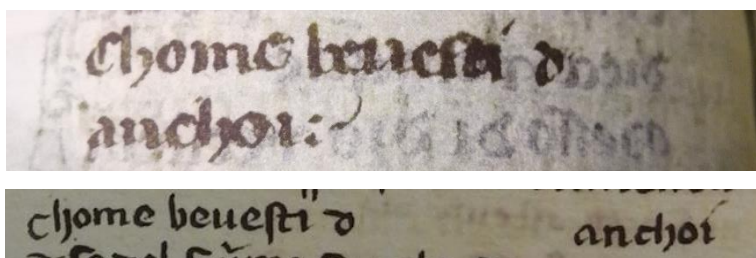 Chome beuesti d
anchoi:~
chome beuesti d anchoi